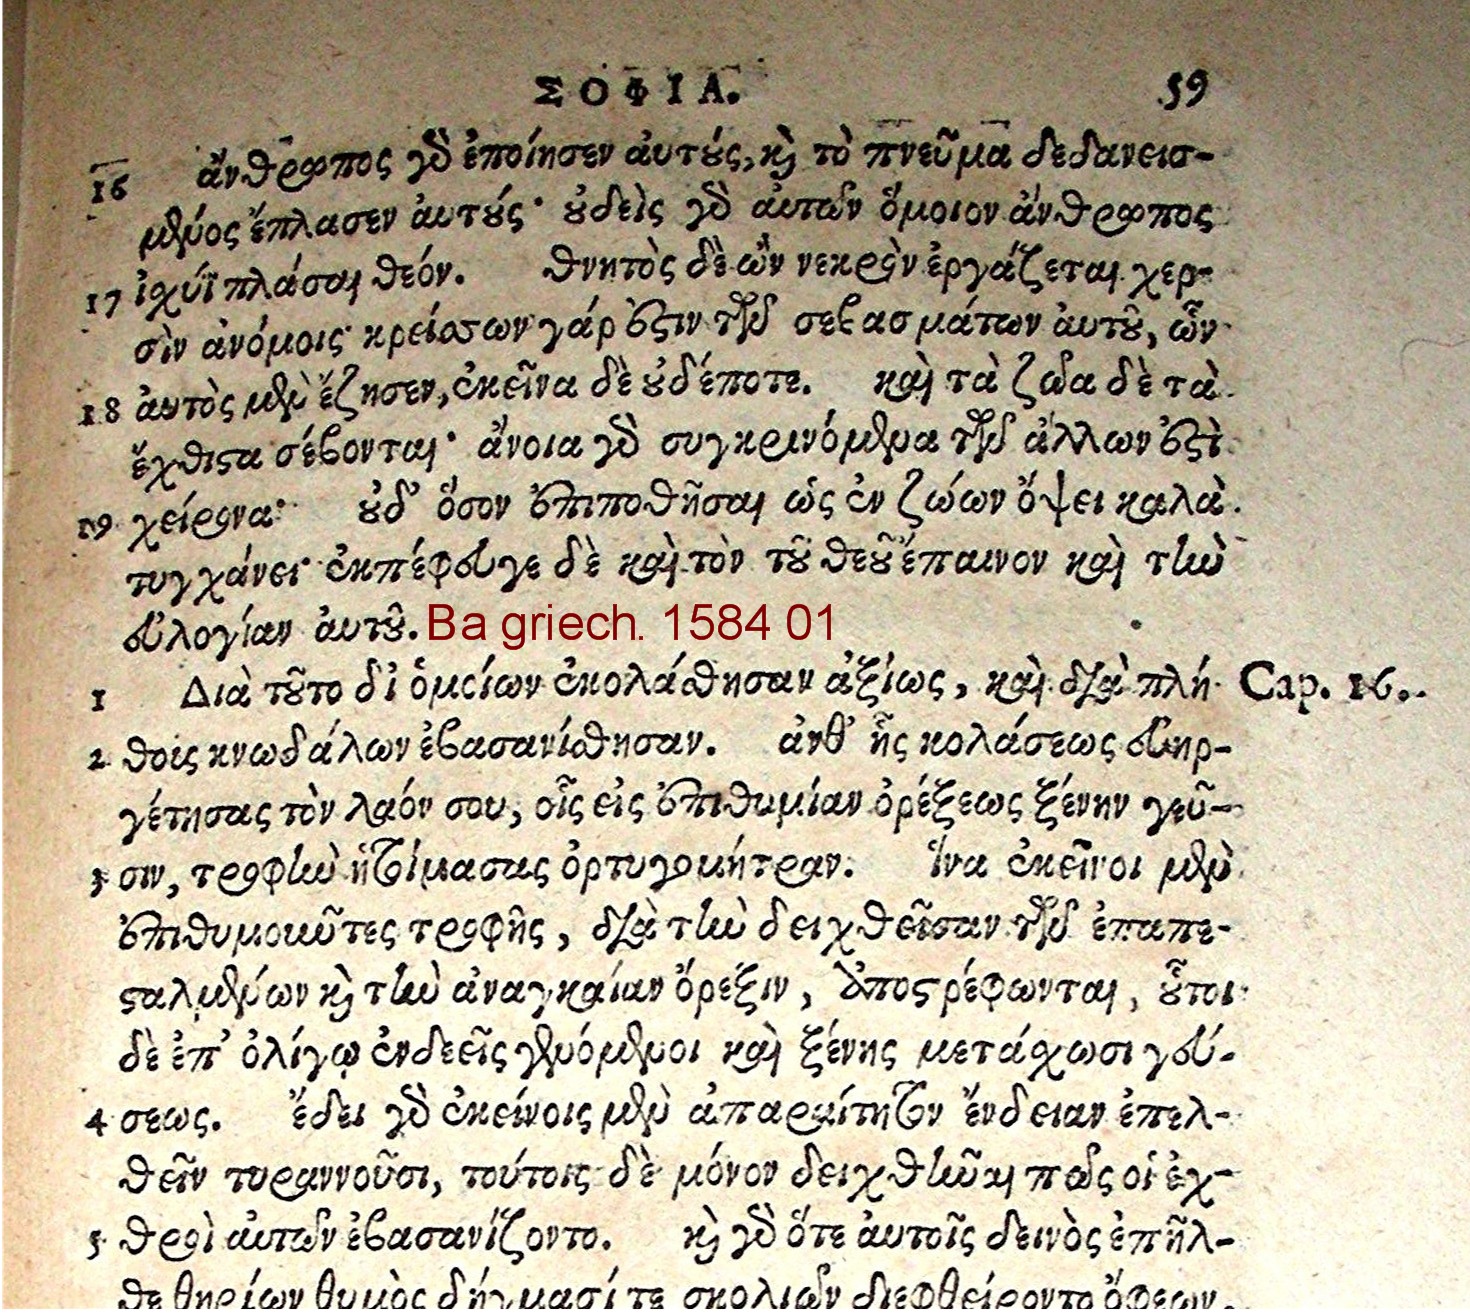 ΣΟΦΙΑ. 59
16 ἄνθρωπος γὸ ἐποίησεν ἀυτούς, κ̀ τὸ πνεῦμα δεδανεισ-
μένος ἔπλασεν ἀυτούς· οὐδεὶς γὸ ἀυτῶν ὅμοιον ἄνθρωπος
17 ἰχύϊ πλάσαι θεόν. θνητὸς δὲ ὢν νεκρὸν ἐργάζεται χερ-
σὶν ἀνόμοις· κρείσσων γάρ ἐστιν τῶν σεβασμάτων ἀυτοῦ, ὧν
18 ἀυτὸς μὲν ἔζησεν, ἐκεῖνα δὲ οὐδέποτε. καὶ τὰ ζῶα δὲ τὰ
ἔχθιστα σέβονται· ἄνοια γὸ συγκρινόμενα τῶν ἄλλων ἐστὶ
19 χείρονα· οὐδ' ὅσον ἐπιποθῆσαι ὡς ἐν ζώων ὄψει καλὰ
τυγχάνει· ἐκπέφευγε δὲ καὶ τὸν τοῦ θεοῦ ἔπαινον καὶ τὴν
εὐλογίαν ἀυτοῦ. Ba griech. 1584 01
1 Διὰ τοῦτο δἰ ὁμοίων ἐκολάσθησαν ἀξίως, καὶ διὰ πλή- Cap. 16.
2 θοις κνωδάλων ἐβασανίσθησαν. ἀνθ' ἧς κολάσεως εὐηρ-
γέτησας τὸν λαόν σου, οἷς εἰς ἐπιθυμίαν ὀρέξεως ξένην γεῦ-
3 σιν, τροφὴν ἡτοίμασας ὀρτυγομήτραν. ἵνα ἐκεῖνοι μὲν
ἐπιθυμοιοῦτες τροφῆς, διὰ τὴν δειχθεῖσαν τῶν ἐπαπε-
σταλμένων κ̀ τὴν ἀναγκαίαν ὄρεξιν, ἀποστρέφωνται, οὗτοι
δὲ ἐπ' ὀλίγῳ ἐνδεεῖς γενόμενοι καὶ ξένης μετάσχωσι γεύ-
4 σεως. ἔδει γὸ ἐκείνοις μὲν ἀπαραίτητον ἔνδειαν ἐπελ-
θεῖν τυραννοῦσι, τούτοις δὲ μόνον δειχθῆναι πῶς οἱ ἐχ-
5 θροὶ ἀυτῶν ἐβασανίζοντο. κ̀ γὸ ὅτε ἀυτοῖς δεινὸς ἐπῆλ-
θε θηρίων θυμὸς δήγμασί τε σκολιῶν διεφθείροντο ὄφεων,